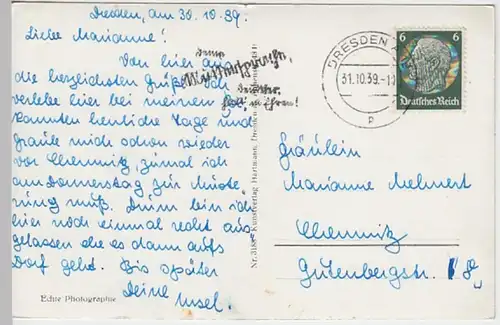 Dresden, am 30.10.39.
Liebe Marianne!
Von hier aus
die herzlichsten Grüße. Ich
verlebe hier bei meinen Be-
kannten herrliche Tage und
graule mich schon wieder
vor Chemnitz, zumal ich
am Donnerstag zur Muste-
rung muß. Drum bin ich
hier noch einmal recht aus-
gelassen ehe es dann aufs
Dorf geht. Bis später
Deine Ursel.
Echte Photographie
Kunstverlag Hartmann, Dresden
Deine
Muttersprache,
halt in Ehren!
DRESDEN
31.10.39
P
6 6
Deutsches Reich
Fräulein
Marianne Mehnert
Chemnitz
Gutenbergstr.